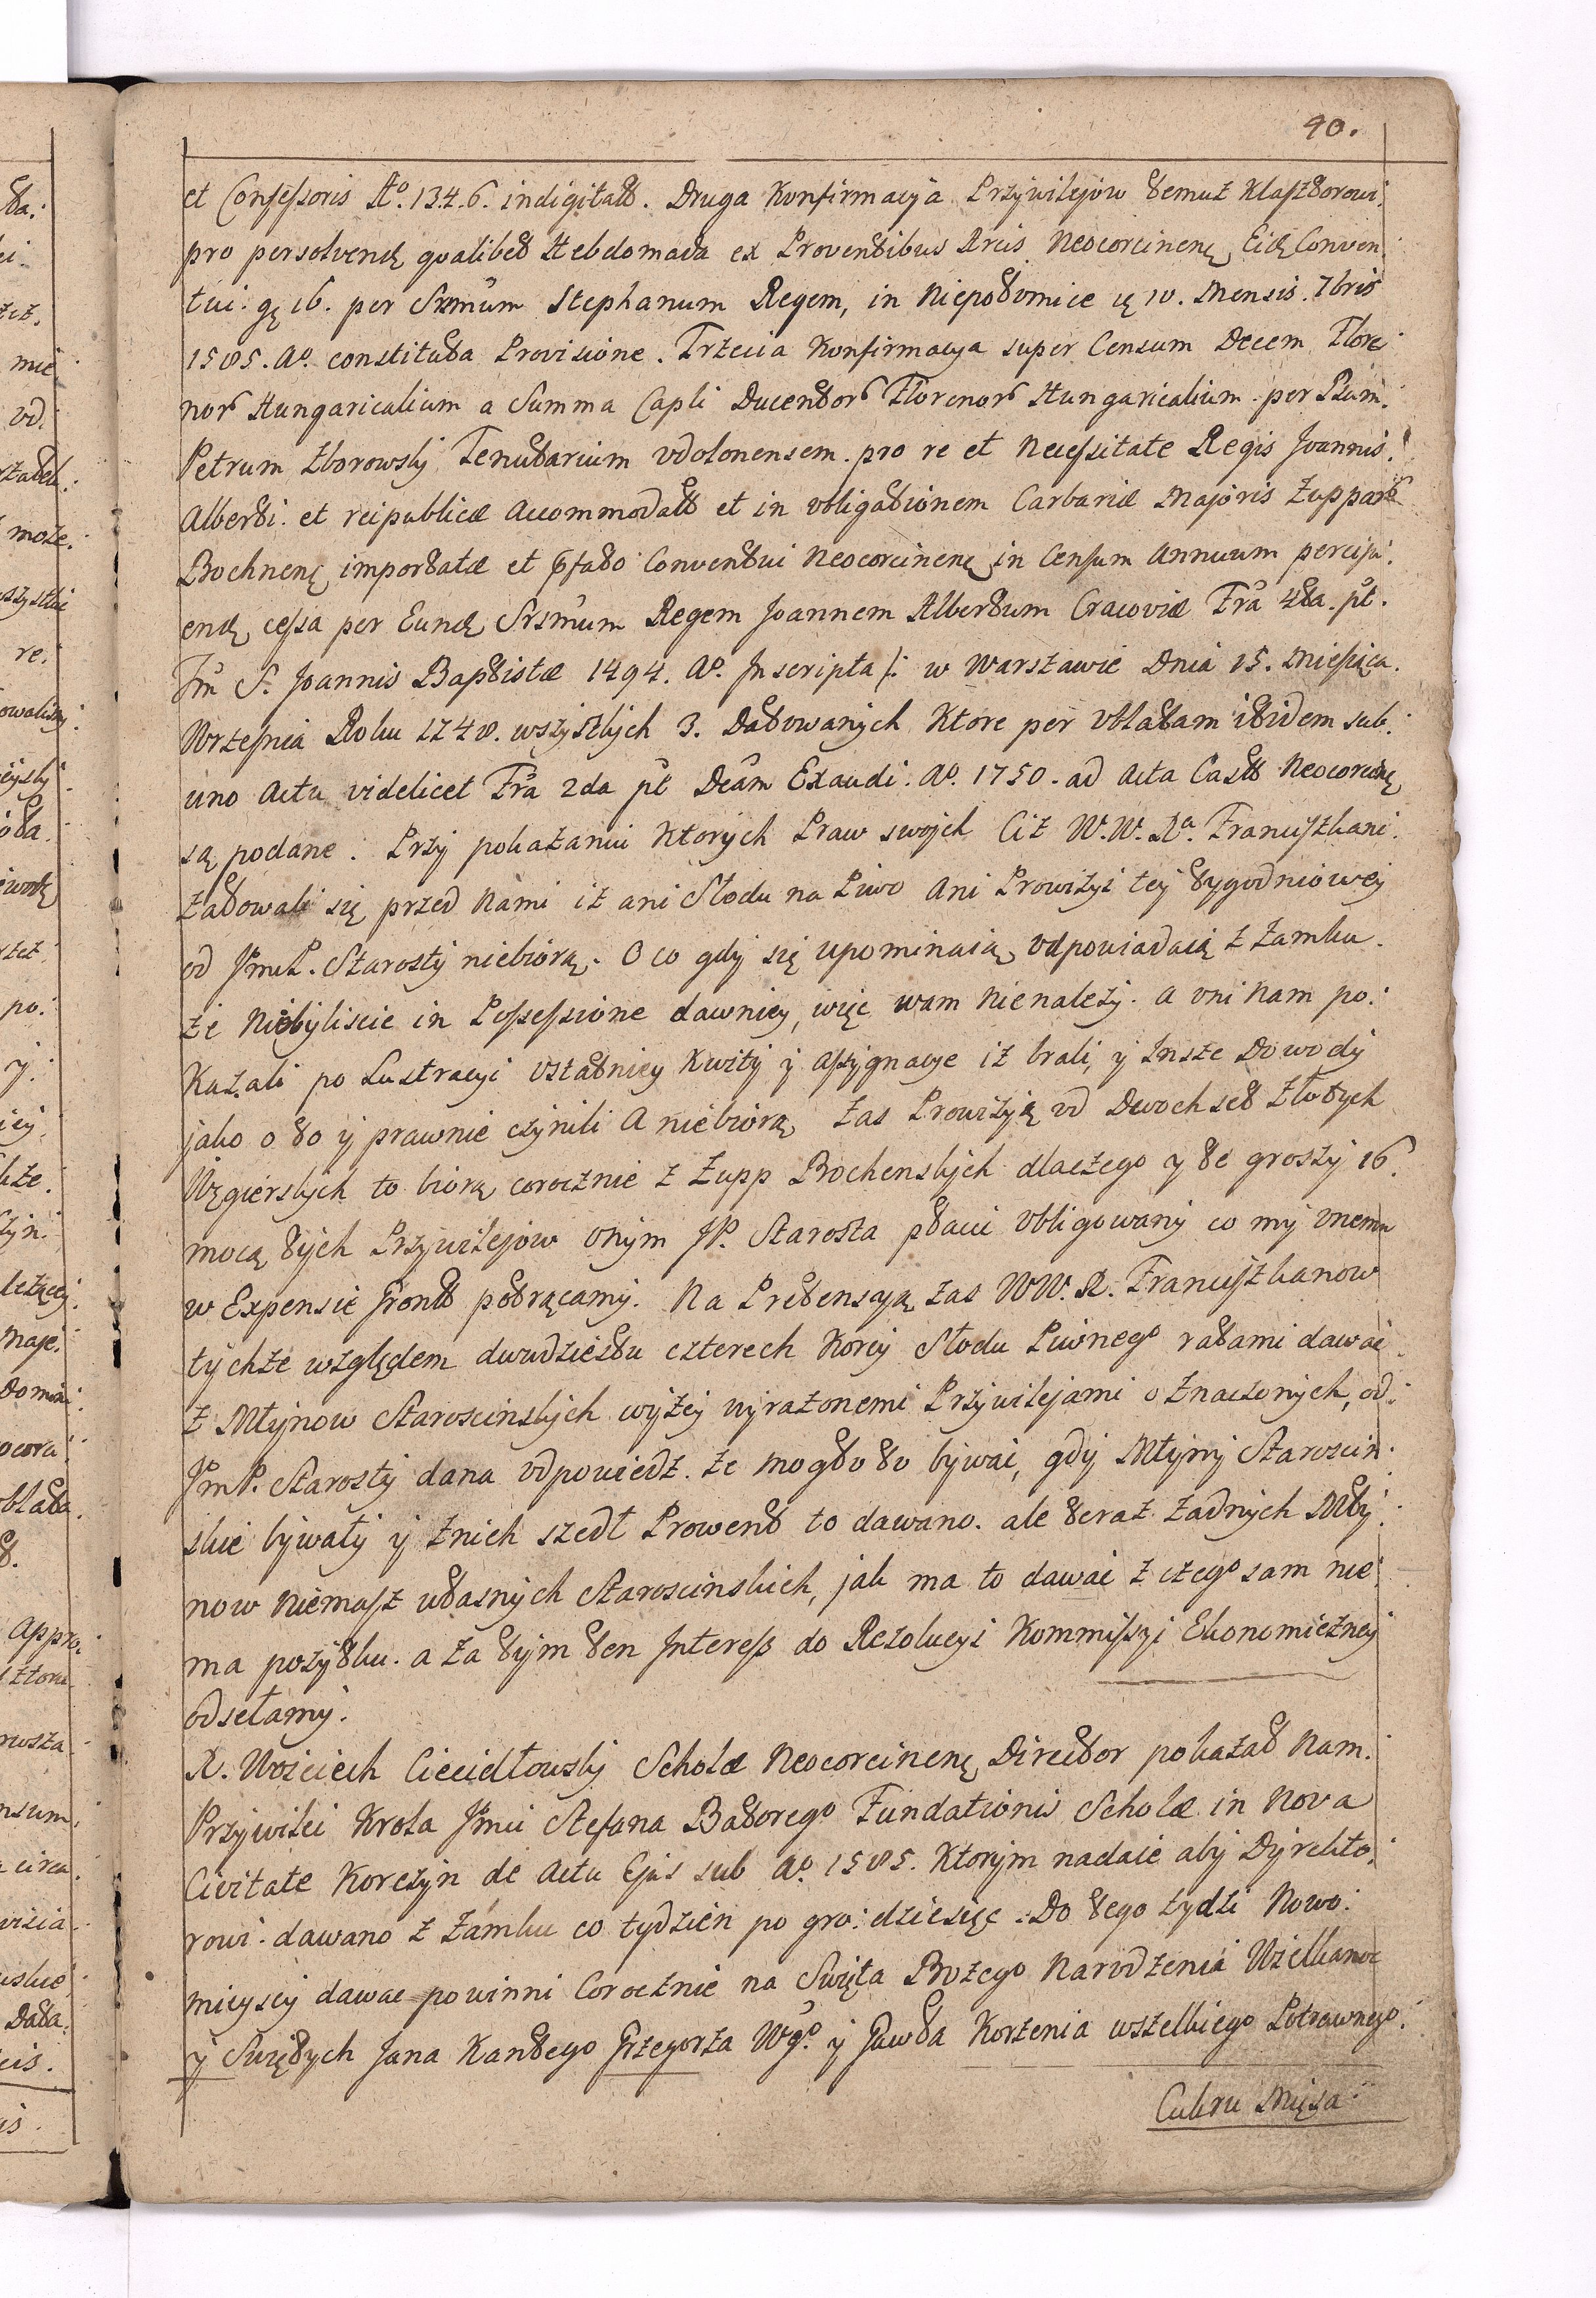 90.
et Confessoris Aº. 1346. indigitatt. Druga Konfirmacyja Przywilejow temuż Klasztorowi
pro persolvendę qvalibet Hebdomada ex Proventibus Arcis Neocorcinenę Eidę Conven
tui gę 16. per Srmûm Stephanum Regem, in Niepołomice 10. Mensis 7bris
1585. aº. constituta Provisione. Trzecia Konfirmacya super Censum Decem Flore
nor Hungaricalium a Summa Capli Ducentor Florenor Hungaricalium per
Petrum Zborowsky Tenutarium odolonensem pro re et Necessitate Regis Joannis
Alberti et reipublicæ Accommodatt et in obligationem Carbariæ Majoris Zuppar
Bochnenę importatæ et Conventui Neocorcinenę in Censum Annuum percipi
endę cessa per Eundę Srsmûm Regem Joannem Albertum Cracoviæ Frâ 4ta pt.
Fm̂ S. Joannis Baptistæ 1494. Aº. Inscripta /: w Warszawie Dnia 15. Miesiąca
Wrzesnia Roku 1748. wszystkich 3. Datowanych Ktore per oblatam ibidem sub
uno Actu videlicet Frâ 2da pt Dcâm Exaudi Aº. 1750. ad Acta Castt Neocorcinę
są podane. Przy pokazaniu Ktorych Praw swojch Ciż W.W. Franciszkani
żalowali się przed Nami iż ani Słodu na Piwo Ani Prowizyi tey tygodniowey
od JmP. Starosty niebiorą. O co gdy się upominaią, odpowiadaią z Zamku
że Niebyliscie in Possessione dawniey, więc wam Nienależy. a oni Nam po
Kazali po Lustracyi ostatniey Kwity y assygnacye iż brali, y Insze Dowody
jako o to y prawnie czynili A niebiorą, zas Prowizyją od Dwoch set Złotych
Węgierskych to biorą corocznie z Zupp Bochenskych dlaczego y te groszy 16.
mocą tych Przywilejow onym JP. Starosta płacić obligowany co my onemu
w Expensie potrącamy. Na Pretensyą zas WW. Franciszkanow
tychże względem dwudziestu czterech Korcy Słodu Piwnegº ratami dawać
z Młynow Staroscinskych wyżey wyrazonemi Przywilejami oznaczonych, od
JmP. Starosty dana odpowiedz. że mogło to bywać, gdy Młyny Staroscin
skie bywały y znich szedł Prowent to dawano. ale teraz żadnych Mły
now niemasz własnych Staroscinskich, jak ma to dawać z czegº sam nie
ma pożytku. a za tym ten Interess do Rezolucyi Kommissyi Ekonomiczney
odsełamy.
X. Woyciech Ciecidłowsky Scholæ Neocorcinenę Director pokazał Nam
Przywiley Krola Jmci Stefana Batoregº Fundationis Scholæ in Nova
Civitate Korczyn de Actu Ejus sub Aº. 1585. Ktorym nadaie aby Dyrekto
rowi dawano z Zamku co tydzien po gro: dziesięc. Do tego żydzi Nowo
mieyscy dawac powinni Corocznie na Swięta Bożego Narodzenia Wielkanoc
y Swiętych Jana Kantego Grzegorza Wgº. y Gawła Korzenia wszelkiego Potrawnego
Cukru Mięsa